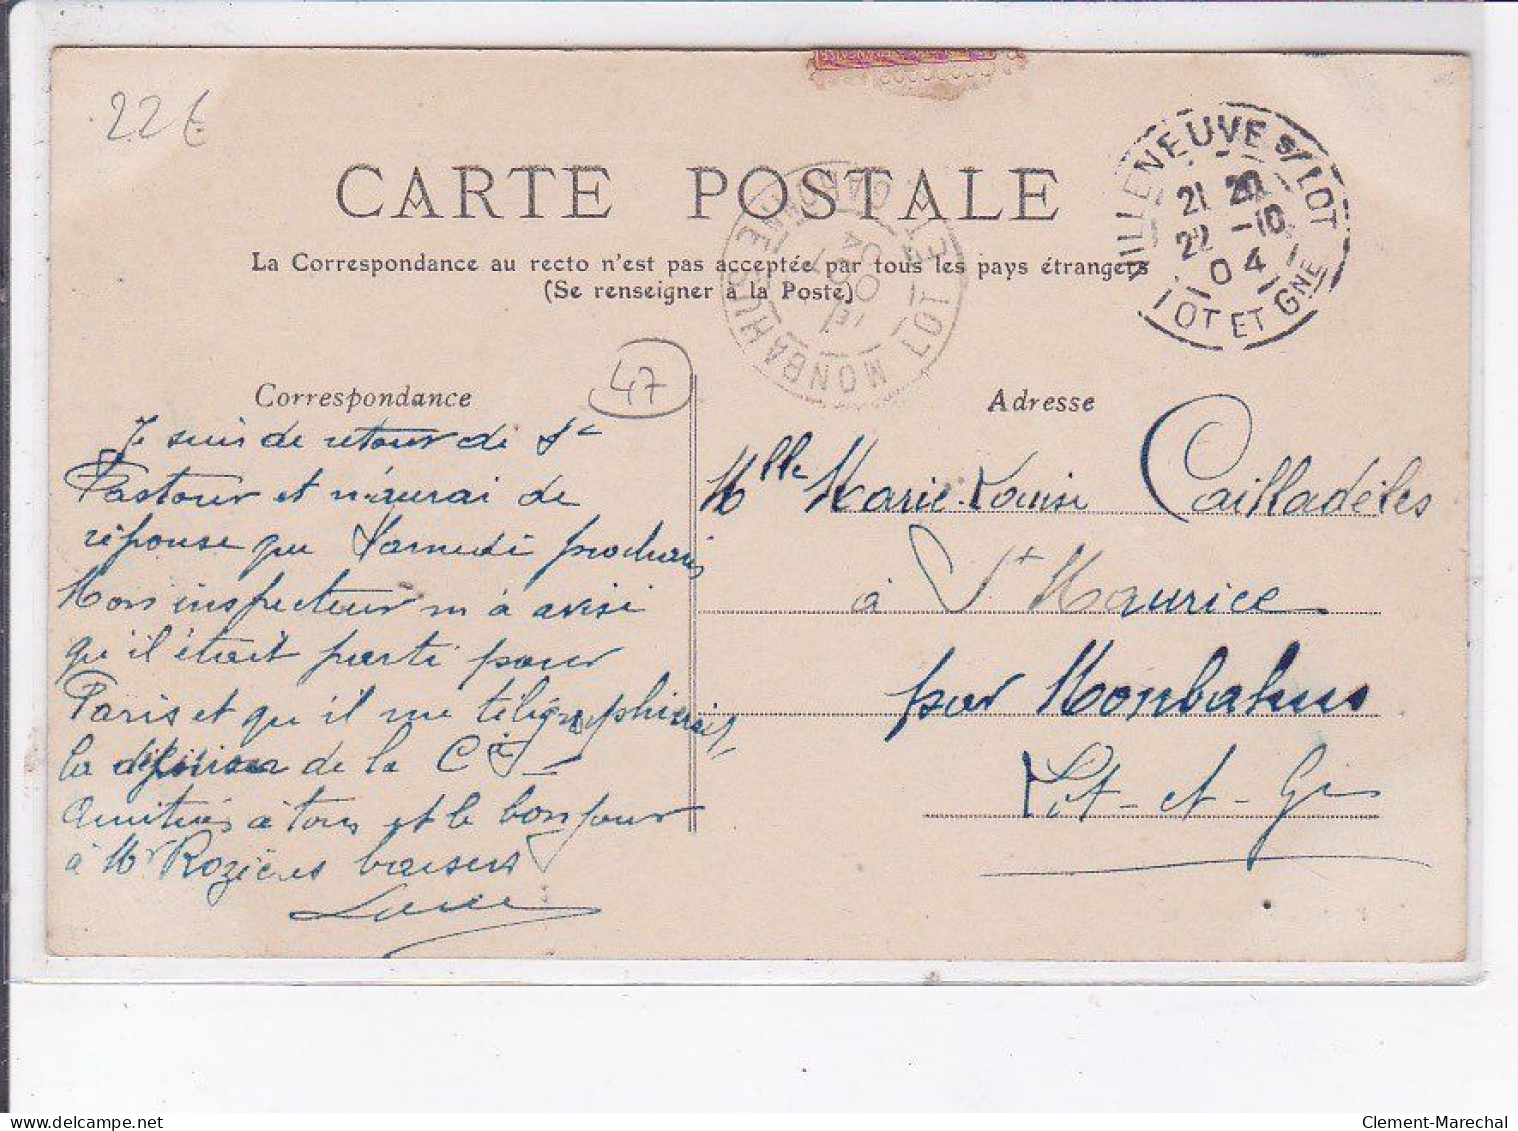 22€
CARTE POSTALE
La Correspondance au recto n'est pas acceptée par tous les pays étrangers
(Se renseigner à la Poste)
VILLENEUVE S/ LOT
21 20
22 -10
04
LOT ET GNE
MONBAHUS
LOT ET GARONNE
47
Correspondance
Je suis de retour de St
Pastour et n'aurai de
réponse que Samedi prochain
Mon inspecteur m'a avisé
qu'il était parti pour
Paris et qu'il me télégraphierait
la décision de la Cie
Amitiés à tous et le bonjour
à Mr Rozières baisers
Adresse
Mlle Marie-Louise Cailladèles
à St Maurice
par Monbahus
Lot-et-Gne
Clement-Marechal